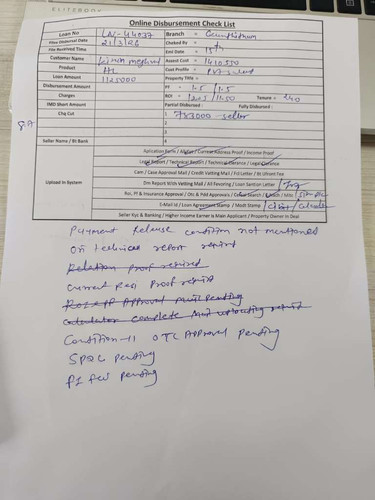 ELITEBOOK
Online Disbursement Check List
Loan No LAI-44037 Branch =
Files Disbursal Date 21/3/26 Cheked By =
File Received Time End Date = 15th
Customer Name Assest Cost = 1410550
Product HL Cost Profile =
Loan Amount 1125000 Property Title =
Disbursement Amount PF = 1.5 / 1.5
Charges ROI = / 11.50 Tenure = 240
IMD Short Amount Partial Disbursed : Fully Disbursed :
Chq Cut 1 783000 - seller
2
3
4
Seller Name / Bt Bank 5
Upload In System
Aplication Form / Aadhar / Current Address Proof / Income Proof
Legal Report / Technical Report / Technical Clerence / Legal Clerence
Cam / Case Approval Mail / Credit Vatting Mail / Fcl Letter / Bt Utlisnt Fee
Dm Report With Vatting Mail / All Fencting / Loan Santion Letter /
Roi, Pf & Insurance Approval / Otc & Pdd Approvals / Cersai Search / / Misc /
E-Mail Id / Loan Agreement Stamp / Modt Stamp /
Seller Kyc & Banking / Higher Income Earner Is Main Applicant / Property Owner In Deal
Payment Release condition not mentioned
on technical report rquird
Relation proof required
Current Resi Proof rquird
Approval mail pending
Calculator complete not uploading
Condition-11 OTC Approval pending
SPDC pending
PF few pending